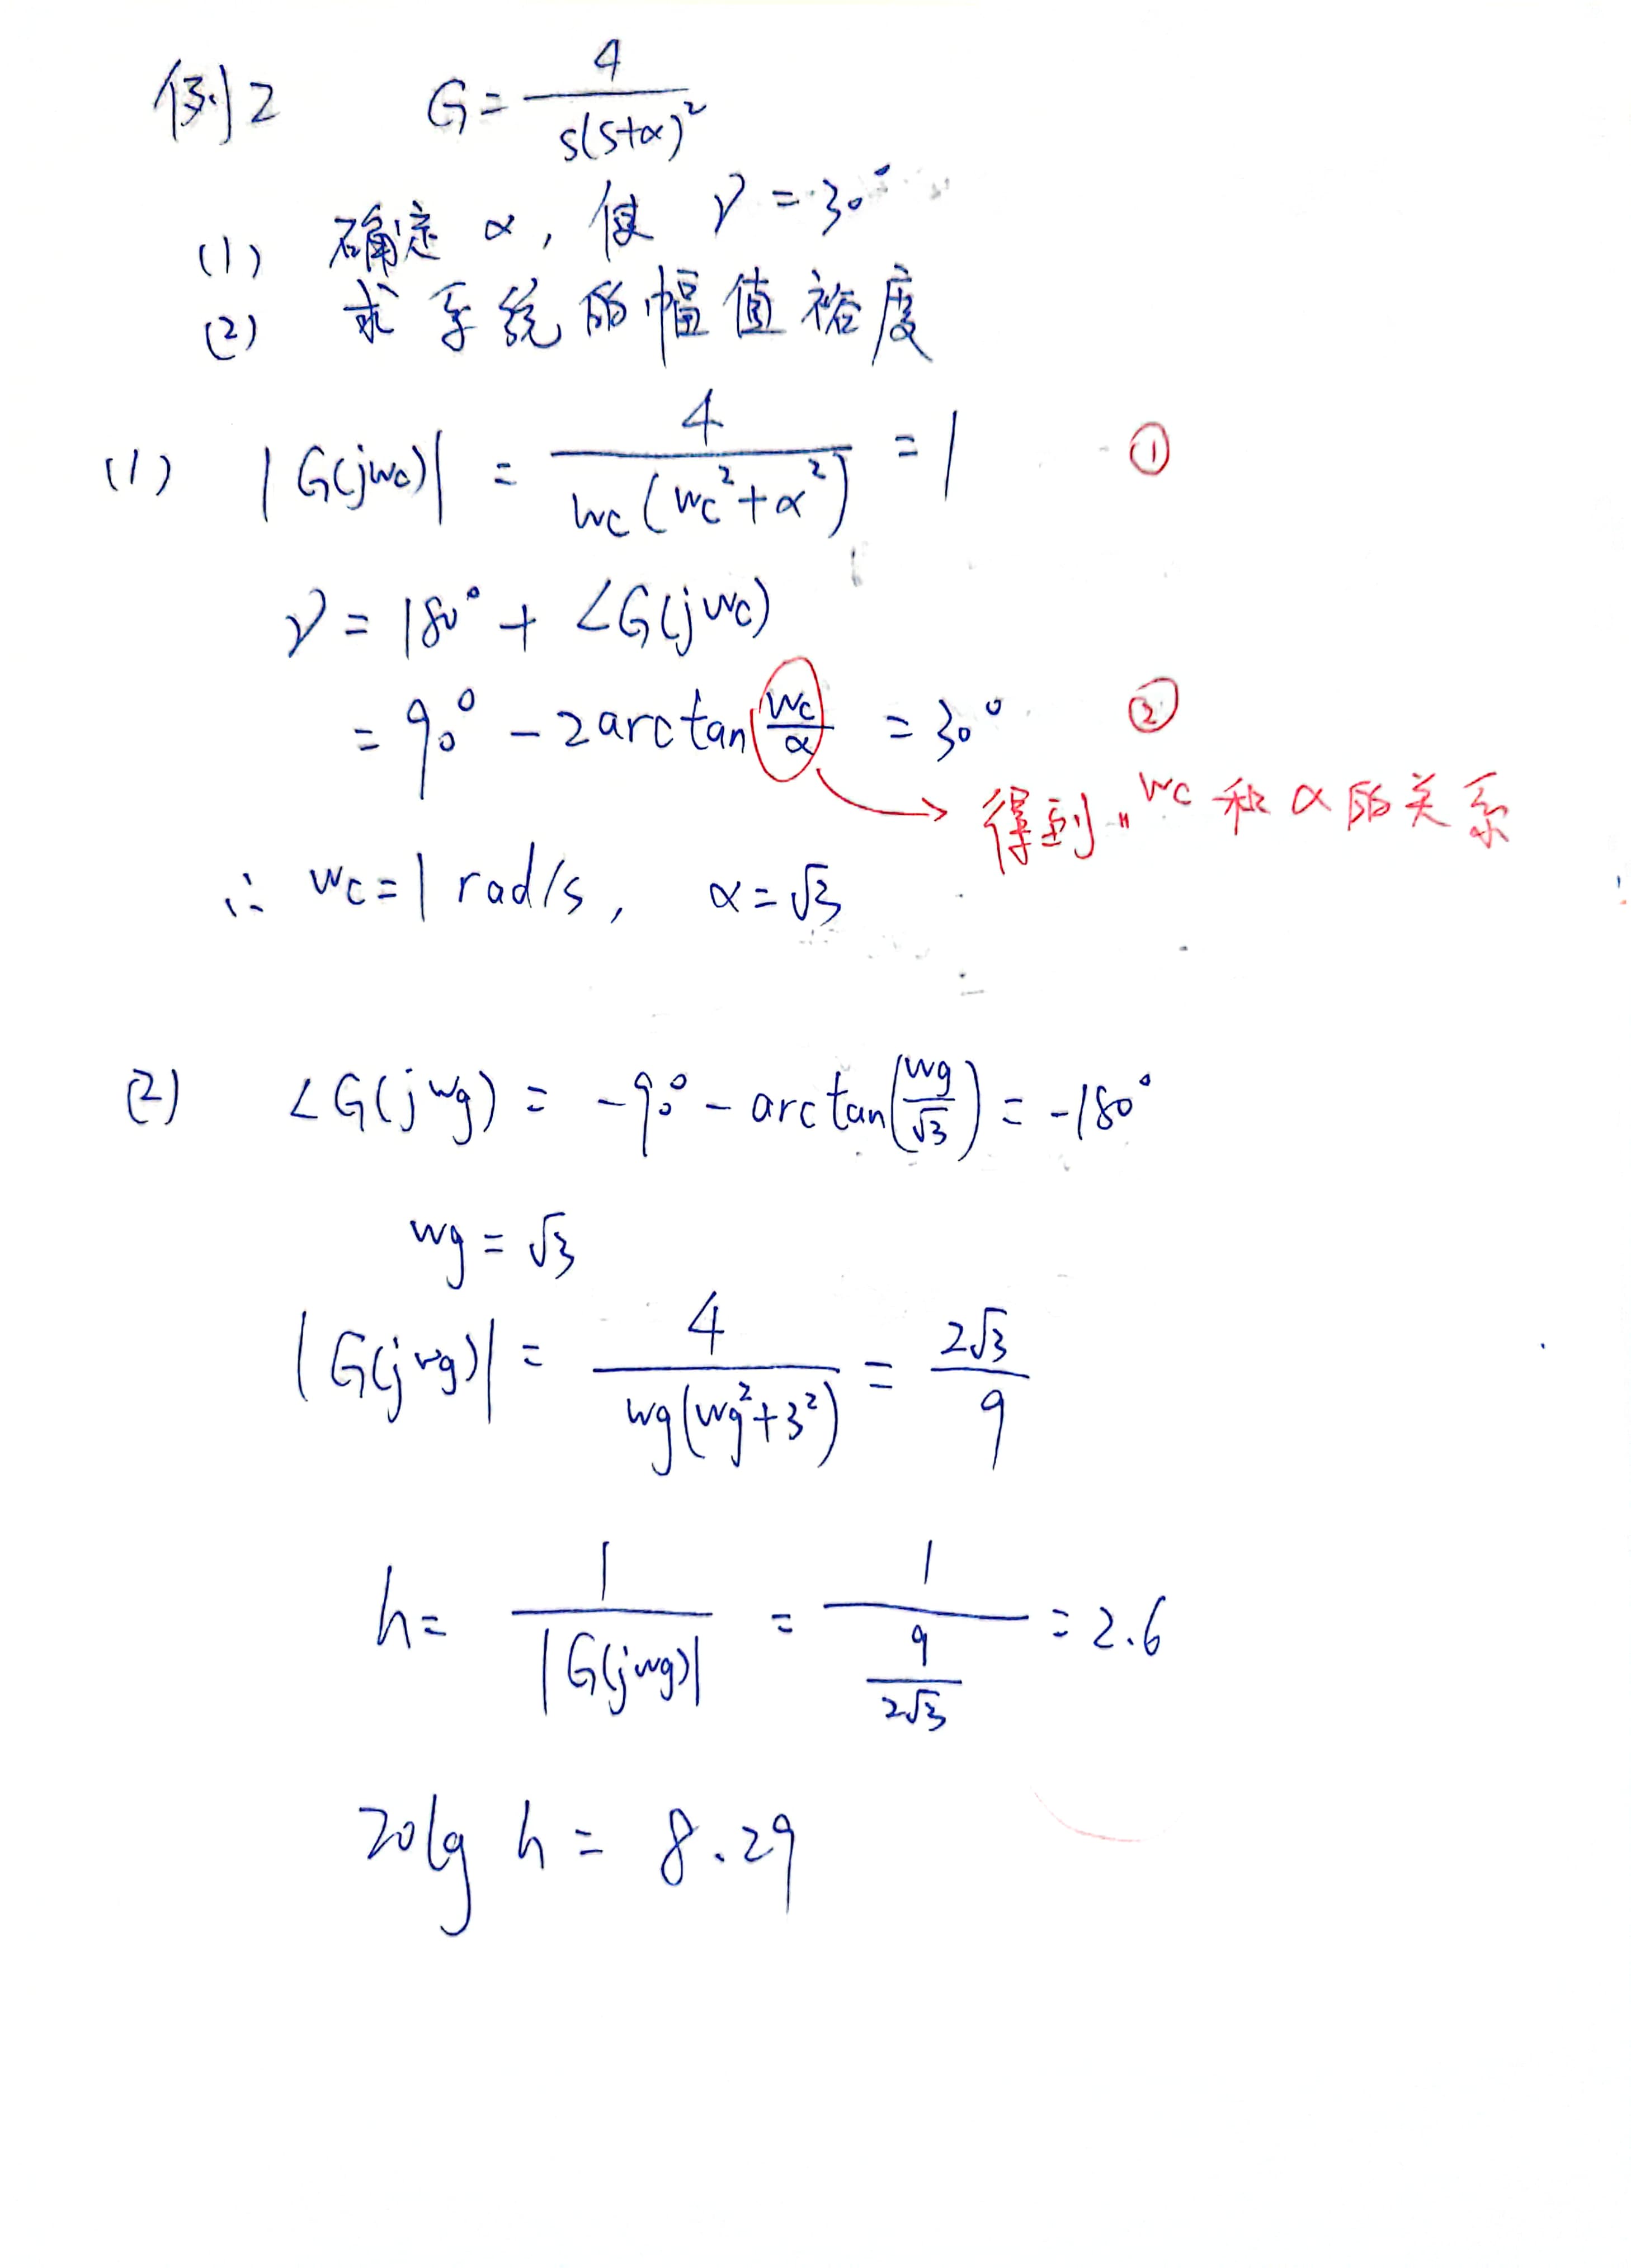 例2 G = 4/(s(s+α)²)
(1) 确定 α, 使 γ = 30°
(2) 求系统的幅值裕度
(1) |G(jwc)| = 4/(wc(wc²+α²)) = 1 ①
γ = 180° + ∠G(jwc)
= 90° - 2arctan wc/α = 30° ②
得到 "wc 和 α 的关系
∴ wc = 1 rad/s, α = √3
(2) ∠G(jwg) = -90° - arctan(wg/√3) = -180°
wg = √3
|G(jwg)| = 4/(wg(wg²+3²)) = 2√3/9
h = 1/|G(jwg)| = 1/(9/(2√3)) = 2.6
20lg h = 8.29